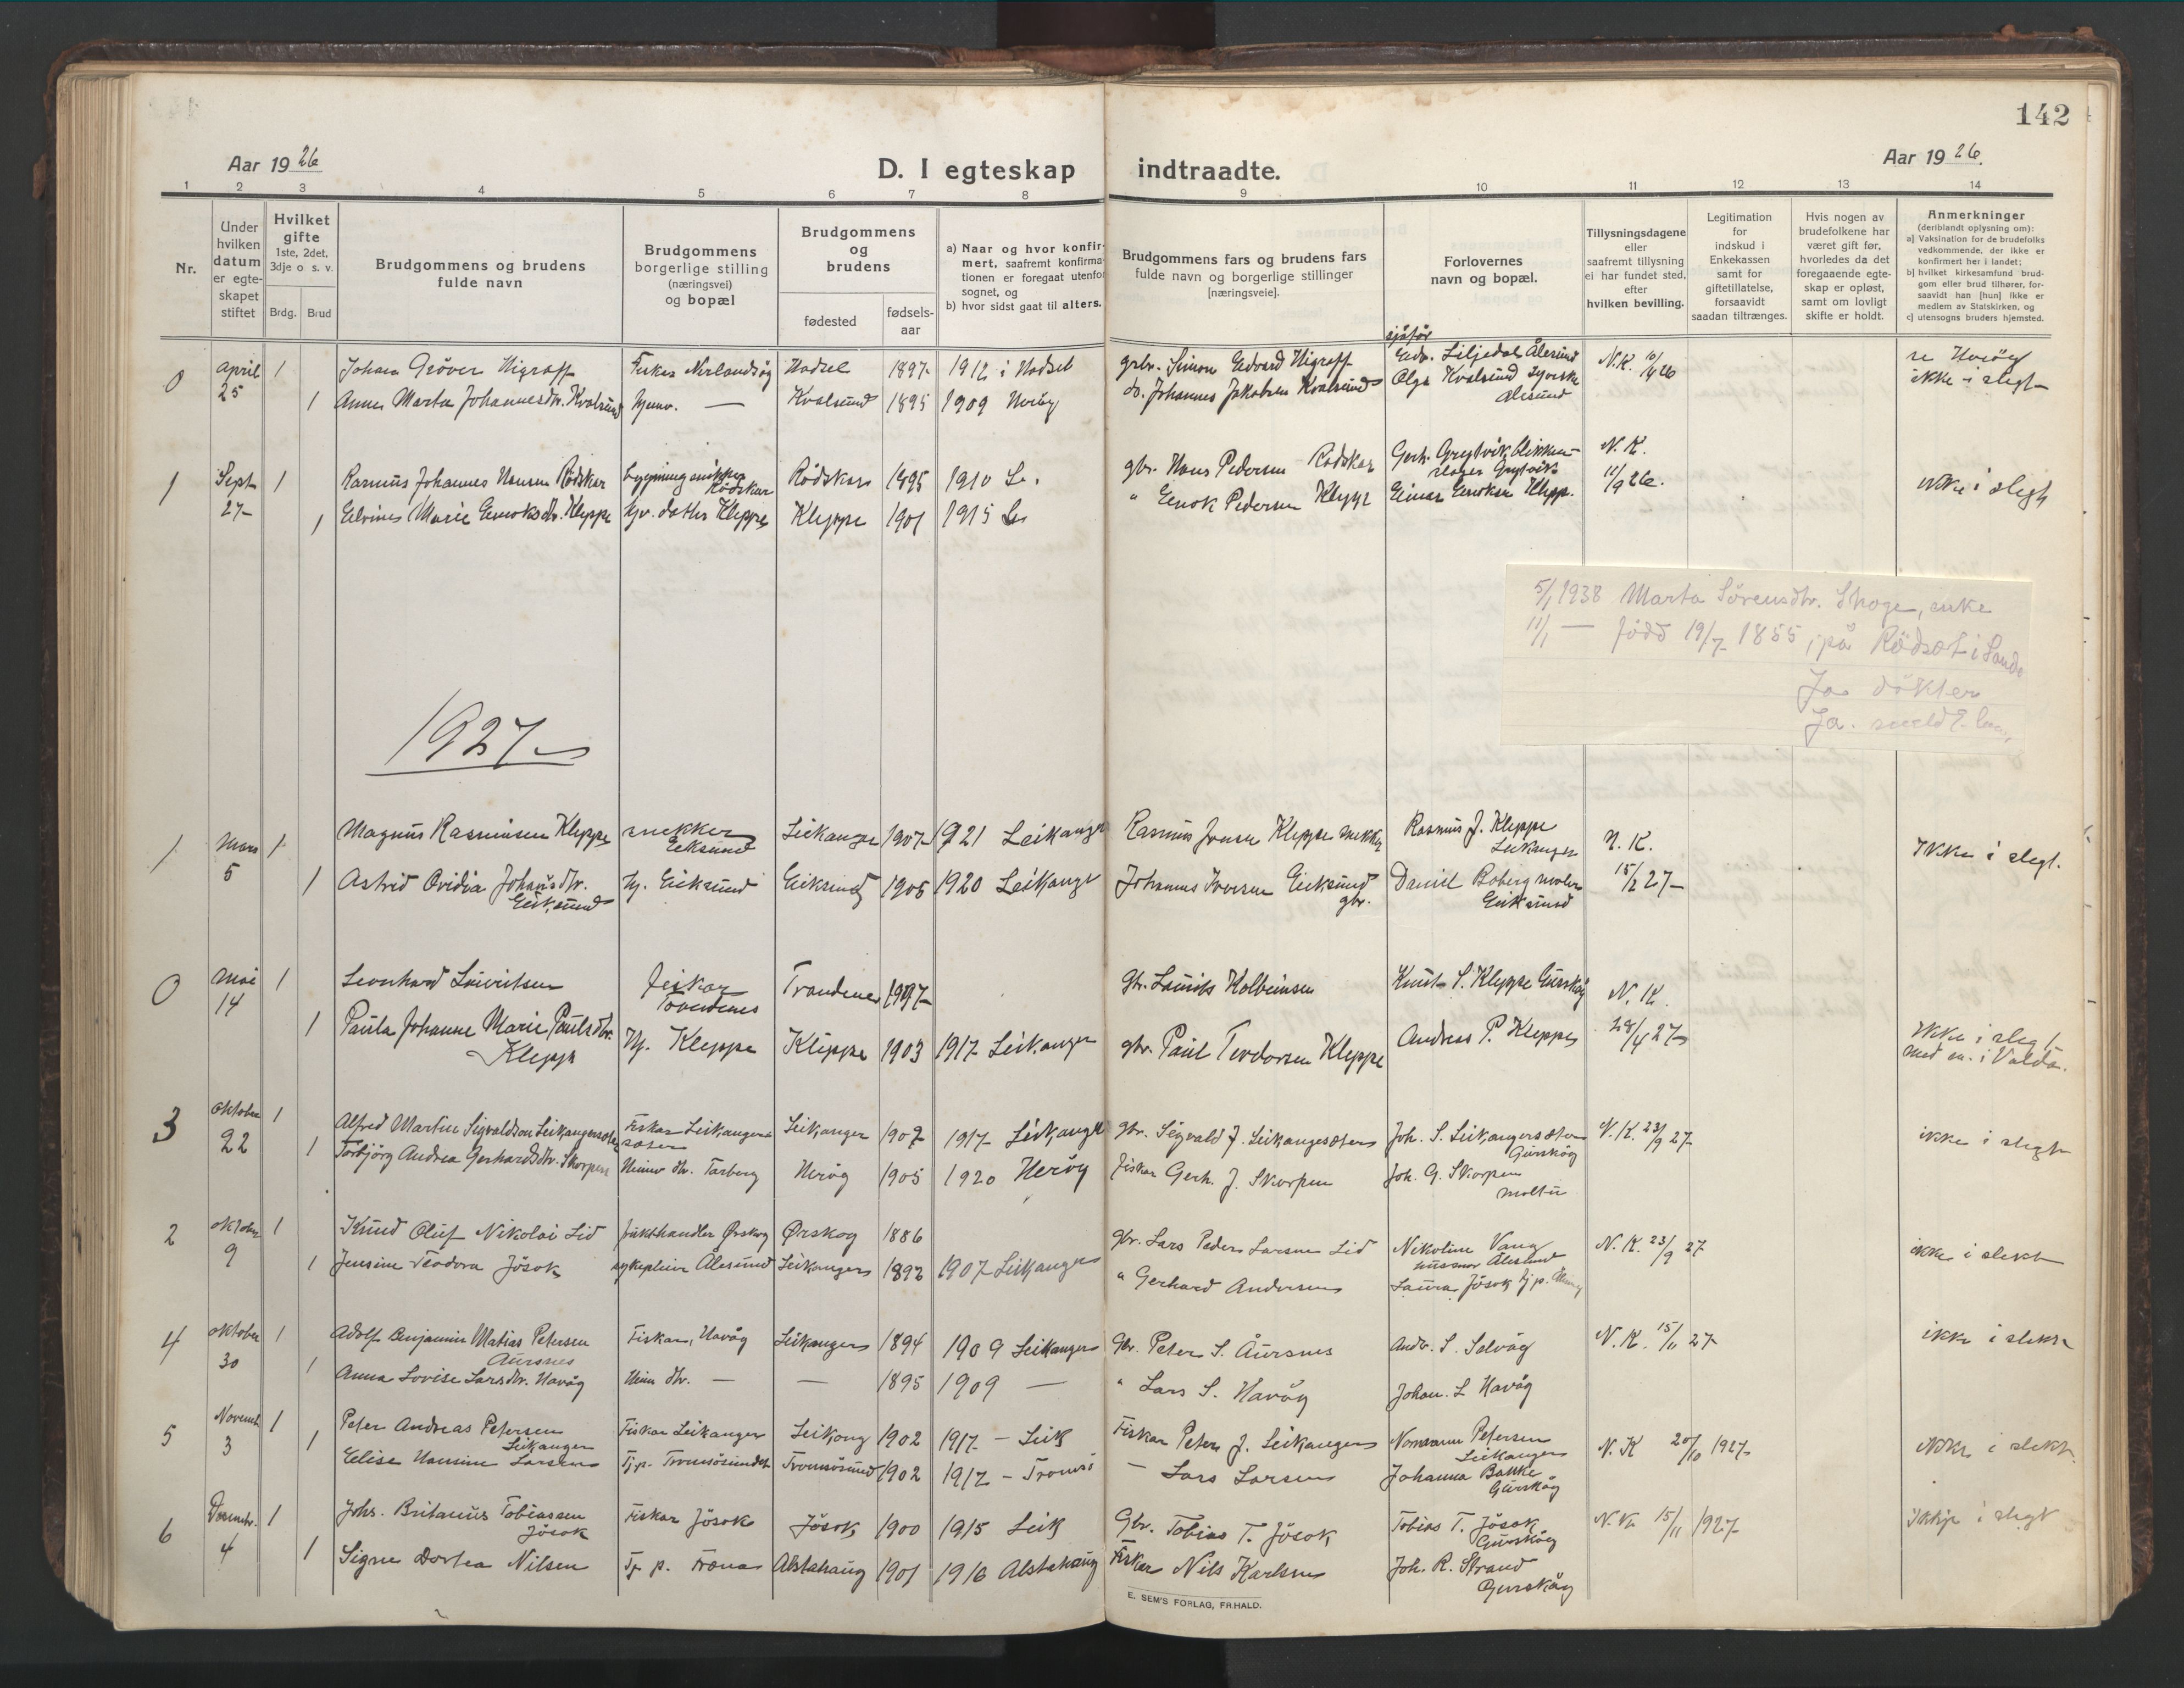 142
Aar 1926
D. I egteskap indtraadte.
Aar 1926.
1 2 3 4 5 6 7 8 9 10 11 12 13 14
Nr.
Under hvilken datum er egteskapet stiftet
Hvilket gifte 1ste, 2det, 3dje o s. v.
Brdg. Brud
Brudgommens og brudens fulde navn
Brudgommens borgerlige stilling (næringsvei) og bopæl
Brudgommens og brudens
fødested
fødsels-aar
a) Naar og hvor konfirmert, saafremt konfirmationen er foregaat utenfor sognet, og
b) hvor sidst gaat til alters.
Brudgommens fars og brudens fars fulde navn og borgerlige stillinger [næringsveie].
Forlovernes navn og bopæl.
Tillysningsdagene eller saafremt tillysning ei har fundet sted, efter hvilken bevilling.
Legitimation for indskud i Enkekassen samt for giftetillatelse, forsaavidt saadan tiltrænges.
Hvis nogen av brudefolkene har været gift før, hvorledes da det foregaaende egteskap er opløst, samt om lovligt skifte er holdt.
Anmerkninger (deriblandt oplysning om):
a] Vaksination for de brudefolks vedkommende, der ikke er konfirmert her i landet;
b] hvilket kirkesamfund brudgom eller brud tilhører, forsaavidt han [hun] ikke er medlem av Statskirken, og
c] utensogns bruders hjemsted.
0 April 25 1 Johan Gröver Nigraff Fisker Nerlandsöy Hadsel 1897 1912 i Hadsel grbr. Simon Edvard Nigraff sjåför Edv. Liljedal Ålesund N.K. 10/4 26
1 Anna Marta Johannesdtr. Kvalsund hjemv. — Kvalsund 1895 1909 Heröy do. Johannes Jakobsen Kvalsund Olga Kvalsund Syerske Alesund ikke i slegt
1 Sept 27 1 Rasmus Johannes Hansen Rödskar bygningsnikker Rödskar Rödskar 1895 1910 Le. gbr. Hans Pedersen Rödskar Gerh. Grytvik blikkenslager Grytvik N.K. 11/9 26.
1 Marie Enoksdtr. Kleppe hjv. datter Kleppe Kleppe 1901 1915 Le " Enok Pedersen Kleppe Einar Enoksen Klepp. ikke i slegt
5/1 1938 Marta Sörensdtr. Skoge, enke
11/1 — född 19/7 1855, på Rödset i Sande
Ja dökter
Ja.
1927
1 Mars 5 1 Magnus Rasmussen Kleppe snekker Eiksund Leikanger 1907 1921 Leikanger Rasmus Jonsen Kleppe snekker Rasmus J. Kleppe Leikanger N.K.
1 Astrid Ovidia Johansdtr. Eiksund Hj. Eiksund Eiksund 1905 1920 Leikanger Johannes Iversen Eiksund gbr. Daniel Boberg moler Eiksund 15/2 27 Ikke i slegt.
0 Mai 14 1 Leonhard Lauritsen fisker Trondenes Trondenes 1897 gbr. Laurits Kolbeinsen Knut S. Kleppe Gurskøy N.K.
1 Paula Johanne Marie Paulsdtr. Klepp Hj. Kleppe Kleppe 1903 1917 Leikanger gbr. Paul Teodorsen Kleppe Andreas P. Kleppe 28/4 27 Ikke i slegt
3 Oktober 22 1 Alfred Martin Sigvaldson Leikangersæter Fisker Leikangersæter Leikanger 1902 1917 Leikanger gbr. Sigvald J. Leikangersæter Joh. S. Leikangersæter Gurskøy N.K. 23/9 27
1 Torbjörg Andrea Gerhardsdtr. Skorpen Heime dtr. Tarberg Heröy 1905 1920 Heröy Fisker Gerh. J. Skorpen Joh. G. Skorpen Moltu ikke i slegt
2 oktober 9 1 Knud Oluf Nikolai Lid frukthandler Ørskog Ørskog 1886 gbr. Lars Peder Larsen Lid Nikoline Vang husmor Ålesund N.K. 23/9 27
1 Jensine Teodora Jösok sykepleier Ålesund Leikanger 1892 1907 Leikanger " Gerhard Andersen Laura Jösok ikke i slekt
4 oktober 30 1 Adolf Benjamin Matias Petersen Aursnes Fisker, Havåg Leikanger 1894 1909 Leikanger Gbr. Peter S. Åursnes Andr. S. Selvåg N.K. 15/11 27
1 Anna Lovise Larsdtr. Havåg Heim dtr. — — 1895 1909 — " Lars S. Havåg Johan. L Havåg ikke i slekt
5 Novemb. 3 1 Peter Andreas Petersen Leikanger Fiskar Leikanger Leikong 1902 1917 – Leik Fiskar Peter J. Leikanger Normann Petersen Leikanger N.K 20/10 1927
1 Elise Hansine Larsen Tj.p. Tromsösundet Tromsösund 1902 1917 – Tromsö — Lars Larsen Johanna Bakke Gurskøy ikke i slekt
6 Desembr. 4 1 Johs. Britanus Tobiassen Jösok Fiskar Jösok Jösok 1900 1915 Leik Gbr. Tobias T. Jösok Tobias T. Jösok Gurskøy N.K. 15/11 1927
1 Signe Dortea Nilsen Tj. p. Træna Alstahaug 1901 1916 Alstahaug Fisker Nils Karlsen Joh. R. Strand Gurskøy Ikkje i slegt
E. SEM'S FORLAG, FR.HALD.